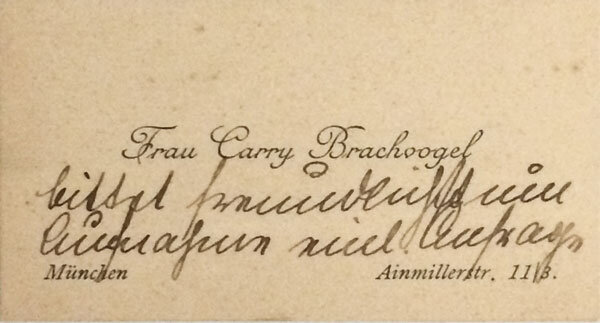 Frau Carry Brachvogel
bittet freundlichst um
Aufnahme einl. Anfrage
München Ainmillerstr. 11/3.